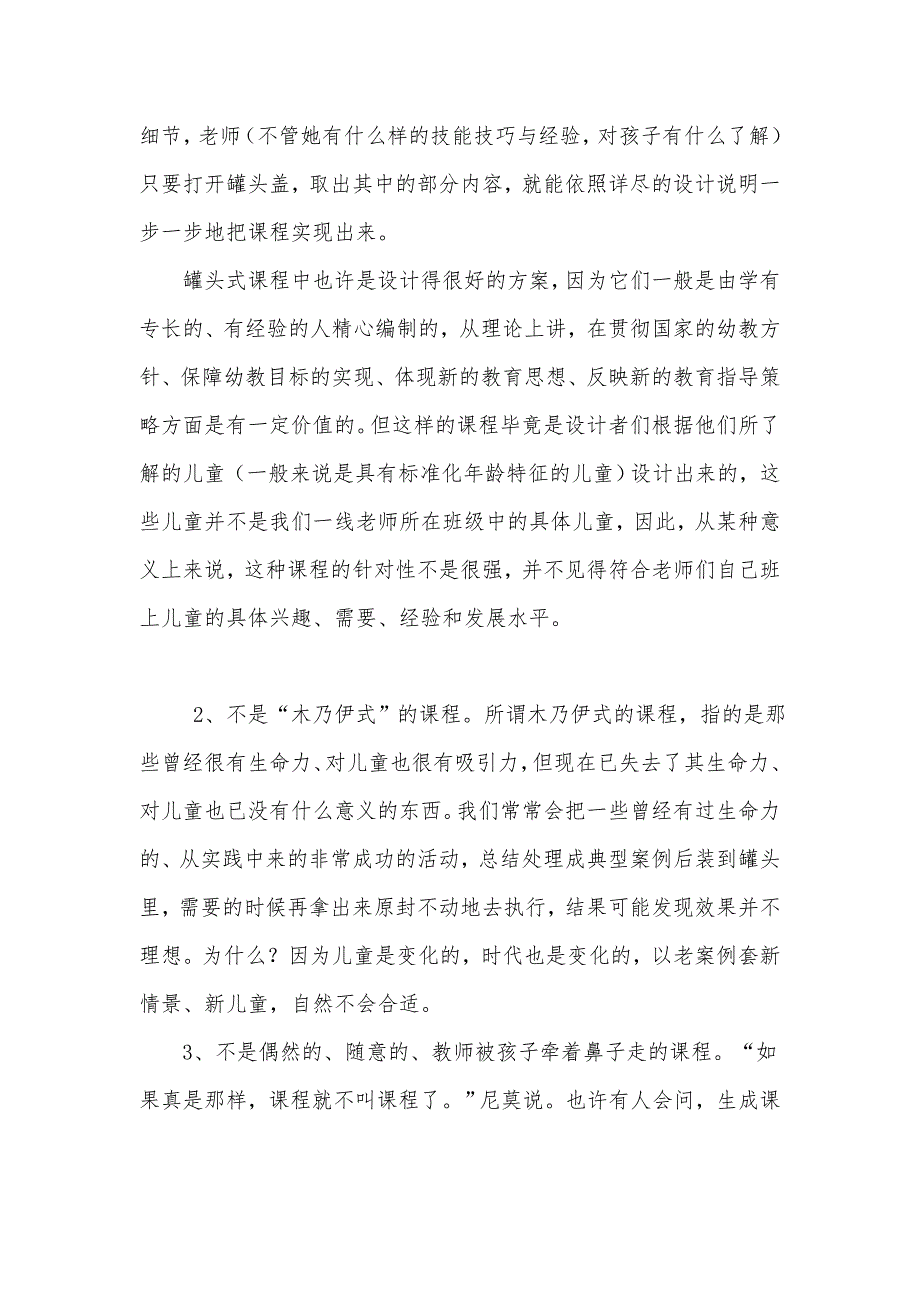 细节，老师（不管她有什么样的技能技巧与经验，对孩子有什么了解）
只要打开罐头盖，取出其中的部分内容，就能依照详尽的设计说明一
步一步地把课程实现出来。
罐头式课程中也许是设计得很好的方案，因为它们一般是由学有
专长的、有经验的人精心编制的，从理论上讲，在贯彻国家的幼教方
针、保障幼教目标的实现、体现新的教育思想、反映新的教育指导策
略方面是有一定价值的。但这样的课程毕竟是设计者们根据他们所了
解的儿童（一般来说是具有标准化年龄特征的儿童）设计出来的，这
些儿童并不是我们一线老师所在班级中的具体儿童，因此，从某种意
义上来说，这种课程的针对性不是很强，并不见得符合老师们自己班
上儿童的具体兴趣、需要、经验和发展水平。
2、不是“木乃伊式”的课程。所谓木乃伊式的课程，指的是那
些曾经很有生命力、对儿童也很有吸引力，但现在已失去了其生命力、
对儿童也已没有什么意义的东西。我们常常会把一些曾经有过生命力
的、从实践中来的非常成功的活动，总结处理成典型案例后装到罐头
里，需要的时候再拿出来原封不动地去执行，结果可能发现效果并不
理想。为什么？因为儿童是变化的，时代也是变化的，以老案例套新
情景、新儿童，自然不会合适。
3、不是偶然的、随意的、教师被孩子牵着鼻子走的课程。“如
果真是那样，课程就不叫课程了。”尼莫说。也许有人会问，生成课